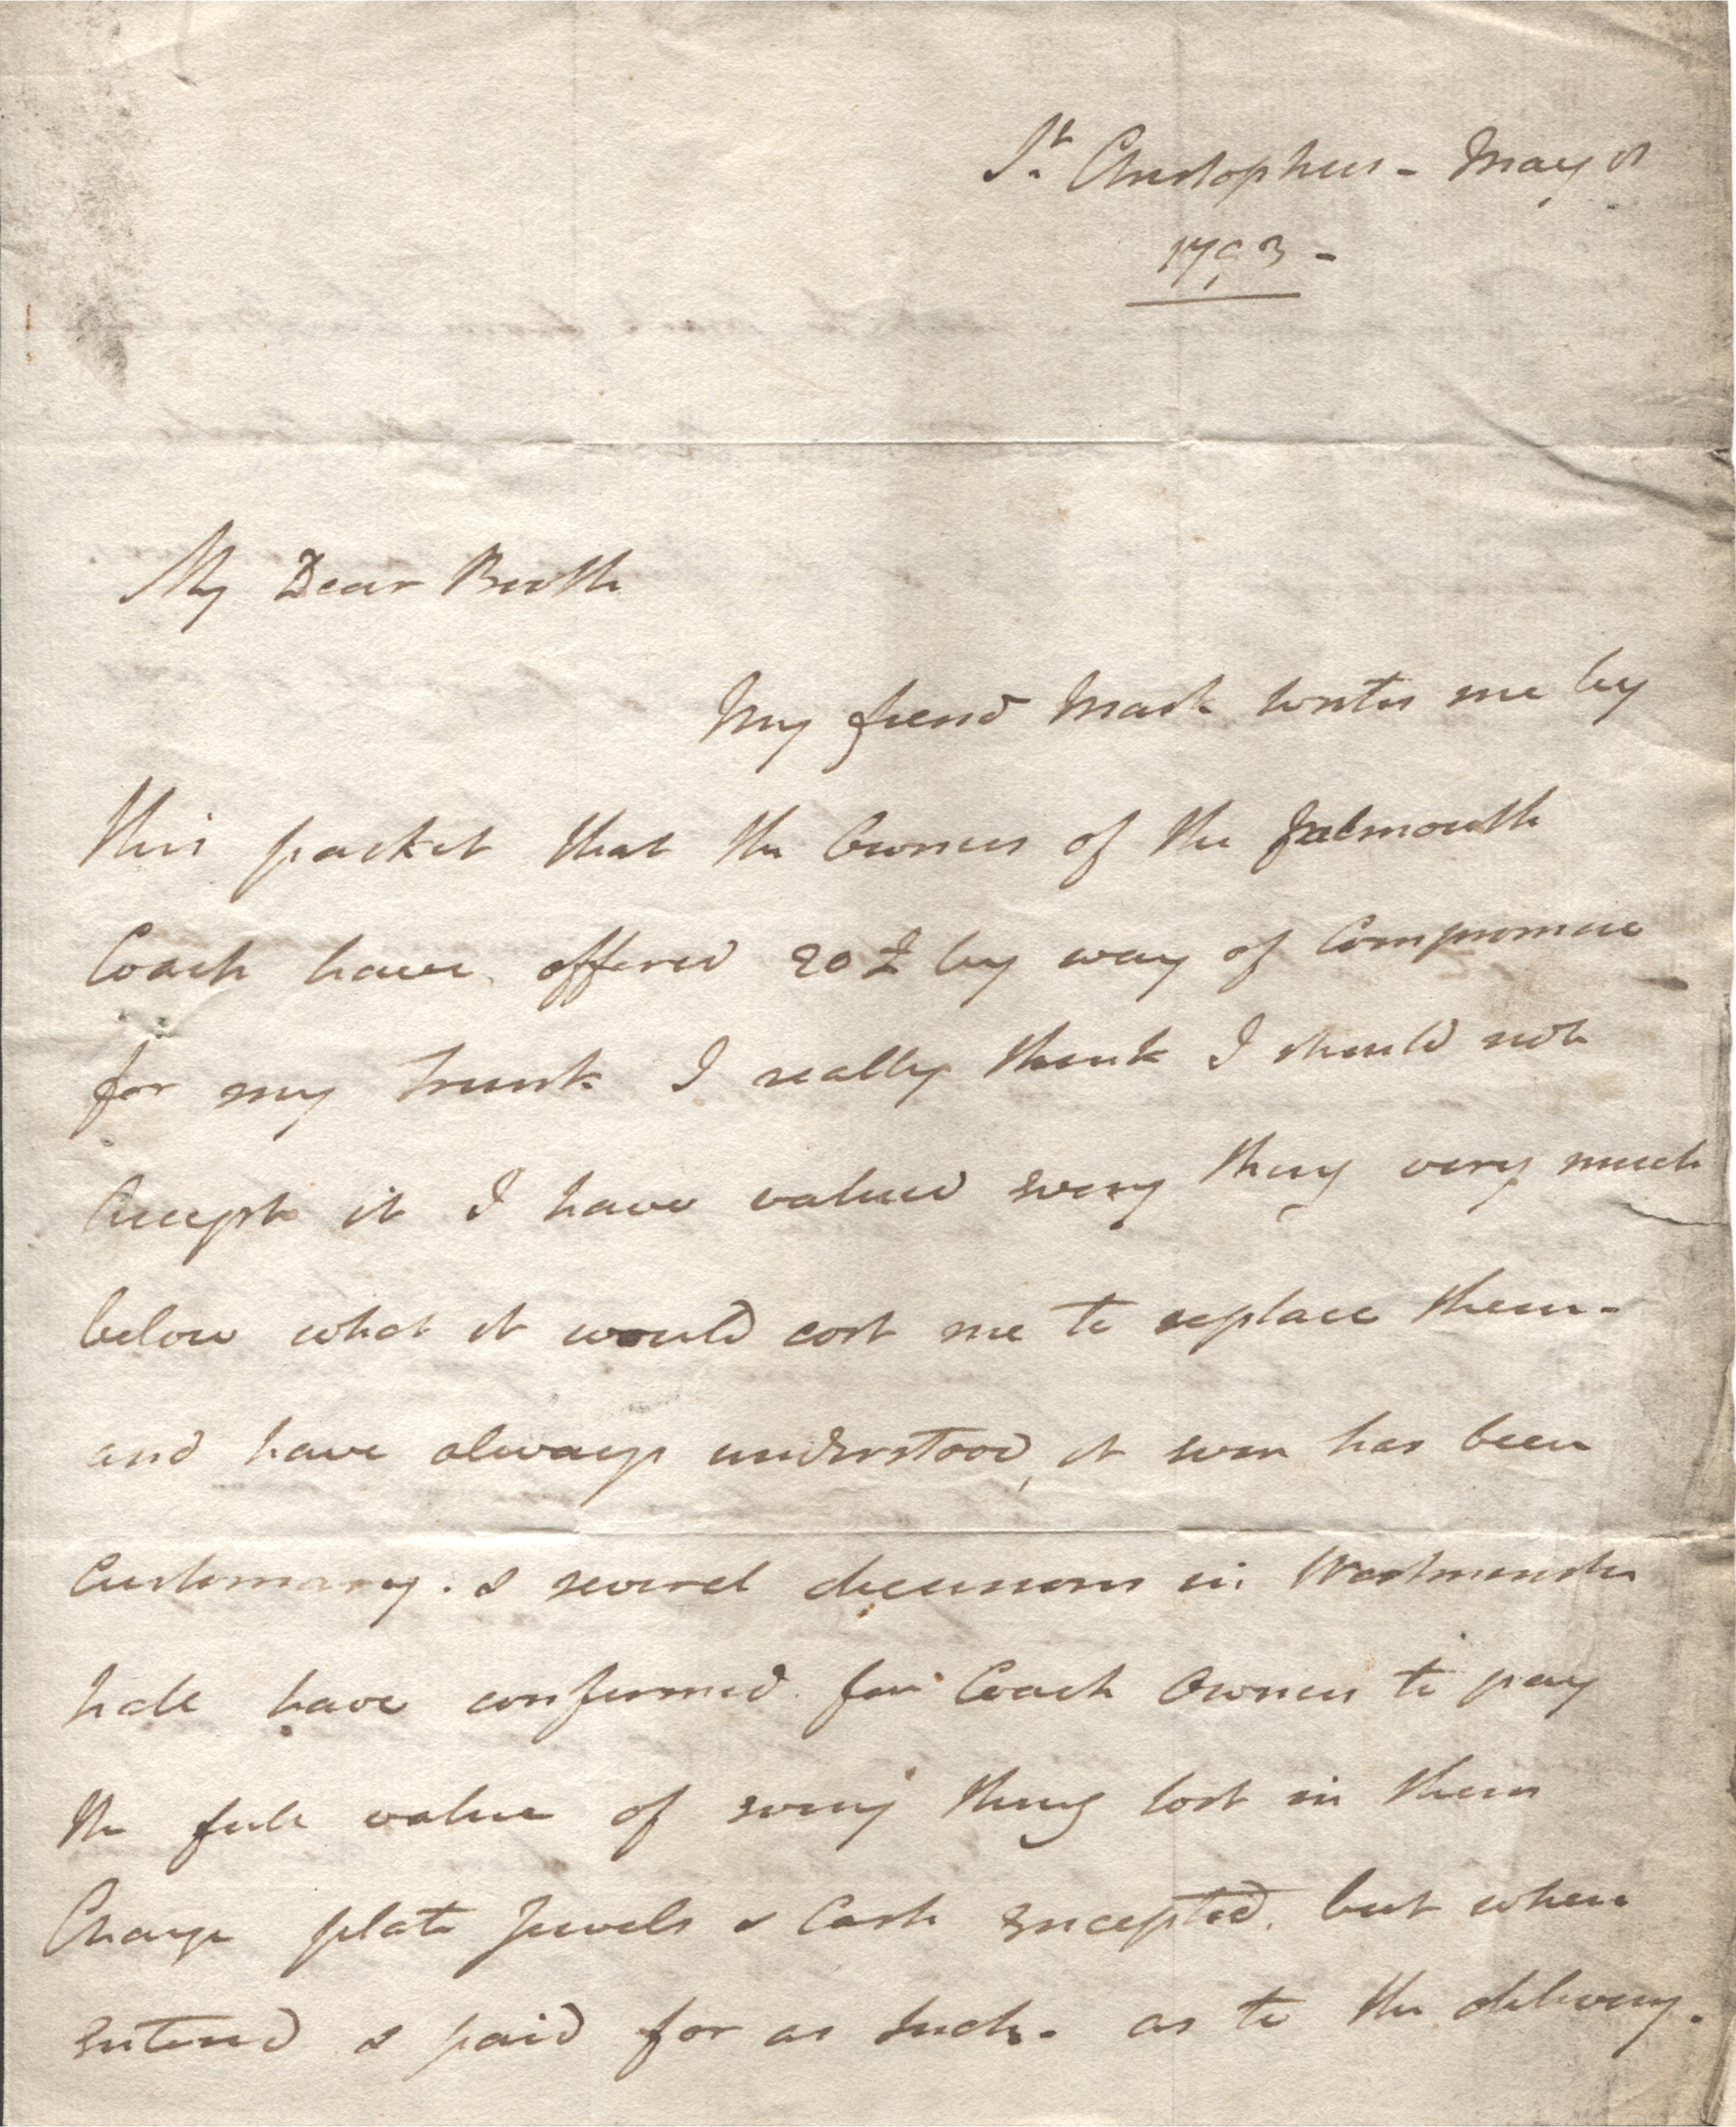 St. Christophers - May 8
1793 -
My Dear Booth
My friend Mark writes me by
this packet that the Owners of the Falmouth
Coach have offered 20£ by way of Compromise
for my Trunk I really think I should not
Accept it I have valued every thing very much
below what it would cost me to replace them -
and have always understood, it ever has been
Customary. & several decisions in Westminster
hall have confirmed for Coach Owners to pay
the full value of every thing lost in their
Charge plate Jewels & Cash excepted. but when
entered & paid for as such. as to the delivery.